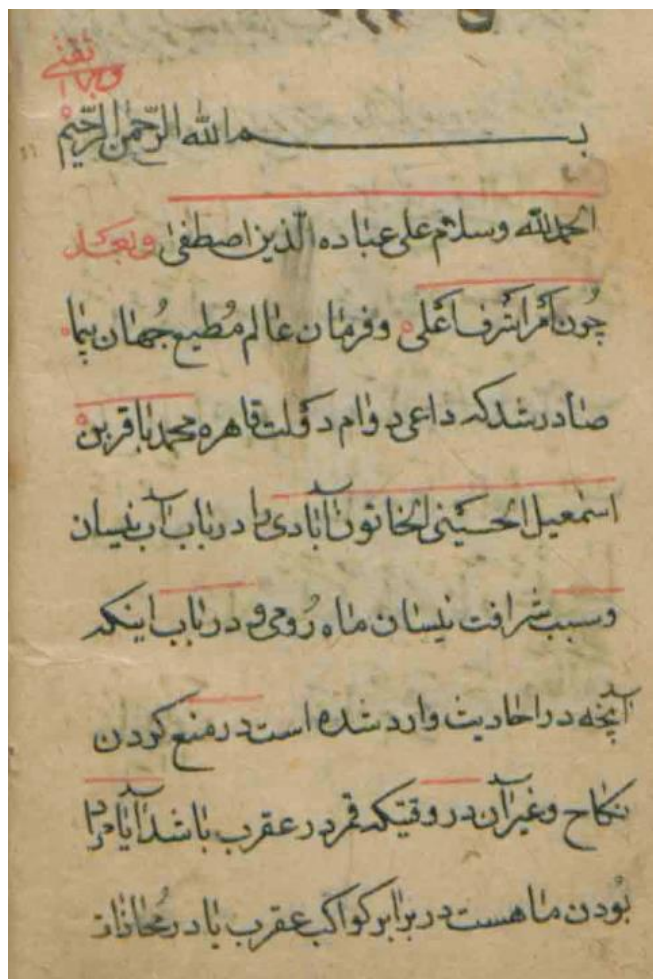 بسم الله الرّحمن الرّحیم
الحمد لله وسلام علی عباده الّذین اصطفی وبعد
چون امر اشرف اعلی و فرمان عالم مُطیع جهان پیما
صادر شد که داعی دوام دولت قاهره محمد باقر بن
اسمعیل الحسینی الخاتون آبادی را در باب آب نیسان
و سبب شرافت نیسان ماه رُومی و در باب اینکه
آنچه در احادیث وارد شده است در منع کردن
نکاح و غیر آن در وقتیکه قمر در عقرب باشد آیا مراد
بُودن ماهست در برابر کواکب عقرب یا در مُحاذات